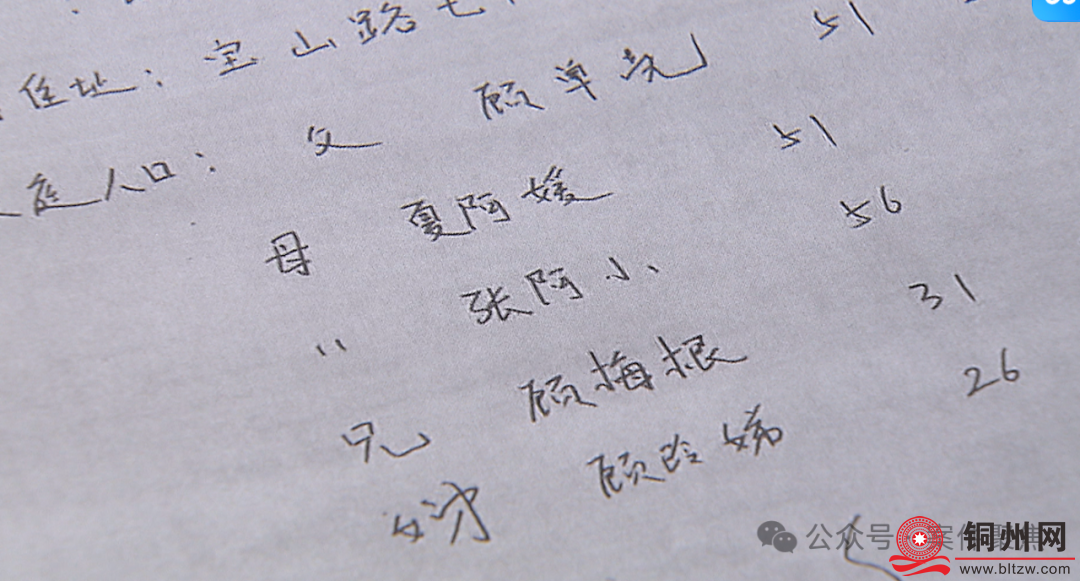 住址：宝山路七
庭人口： 父 顾阜尧 51
母 夏阿媛 51
〃 张阿小 56
兄 顾梅根 31
顾玲娣 26
公众号 案件聚焦
铜州网
www.bltzw.com